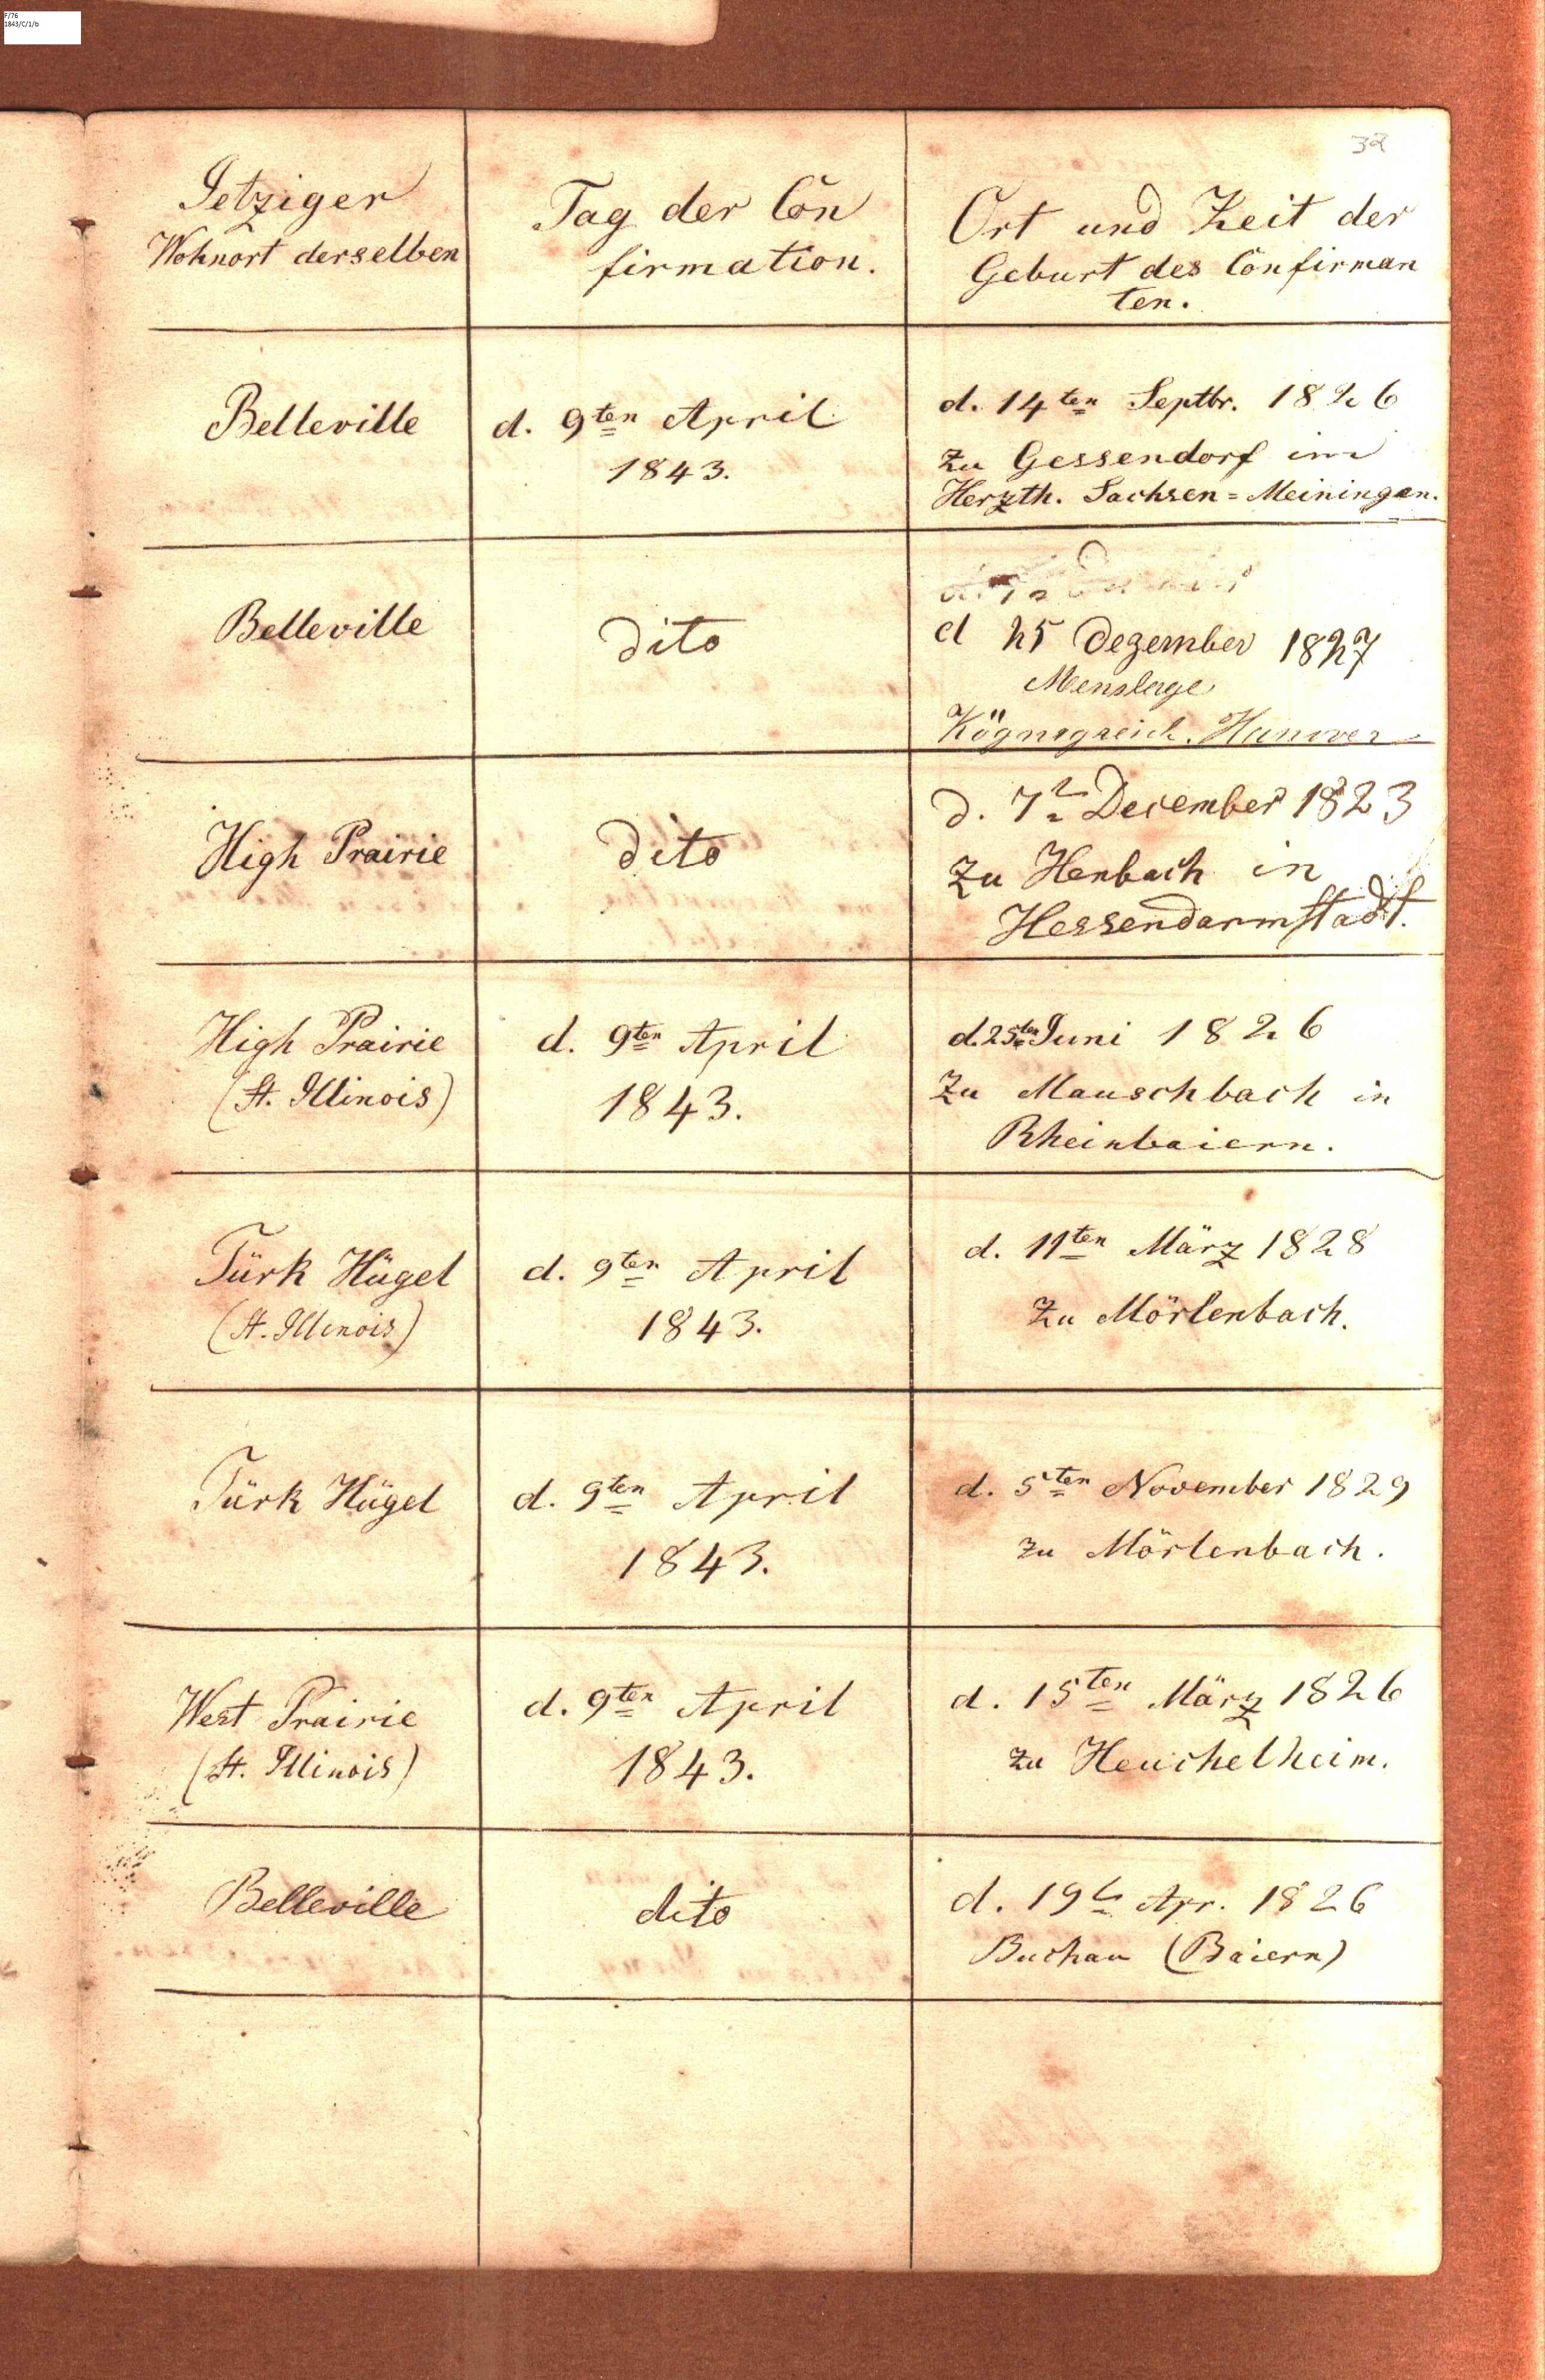 F/76
1843/C/1/b
32
Jetziger
Wohnort derselben
Tag der Con̄
firmation.
Ort und Zeit der
Geburt des Con̄firman
ten.
Belleville
d. 9ten April
1843.
d. 14ten Septbr. 1826
zu Gessendorf im
Herzth. Sachsen=Meiningen.
Belleville
dito
d 25 Dezember 1827
Menslage
Kögnegreich. Hanover
High Prairie
dito
d. 7t December 1823
zu Henbach in
Hessendarmstadt.
High Prairie
(St. Illinois)
d. 9ten April
1843.
d. 25ten Juni 1826
zu Mauschbach in
Rheinbaiern.
Türk Hügel
(St. Illinois)
d. 9ten April
1843.
d. 11ten März 1828
zu Mörlenbach.
Türk Hügel
d. 9ten April
1843.
d. 5ten November 1829
zu Mörlenbach.
West Prairie
(St. Illinois)
d. 9ten April
1843.
d. 15ten März 1826
zu Heuchelheim.
Belleville
dito
d. 19t Apr. 1826
Buchau (Baiern)